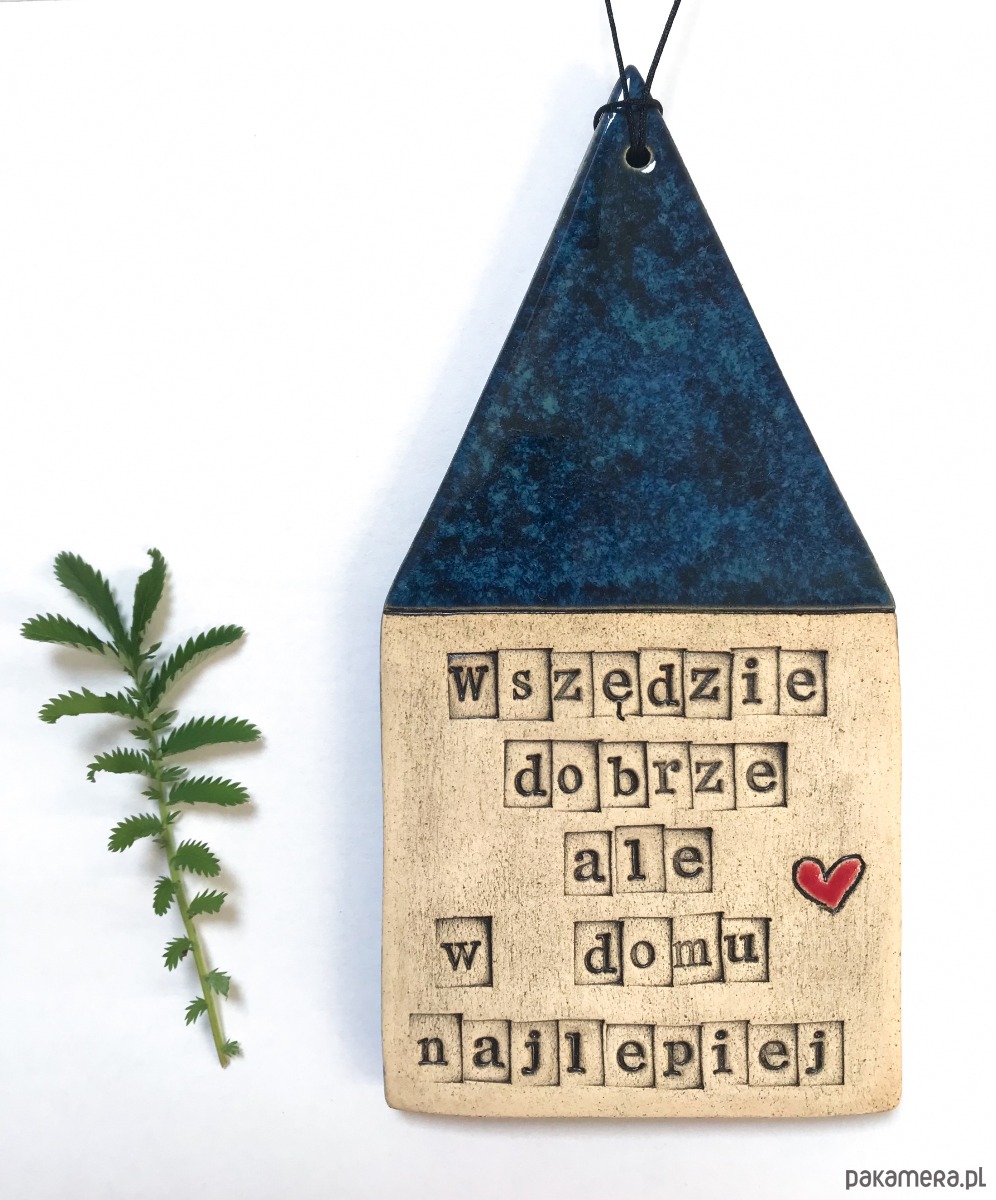 Wszędzie
dobrze
ale
w domu
najlepiej
pakamera.pl